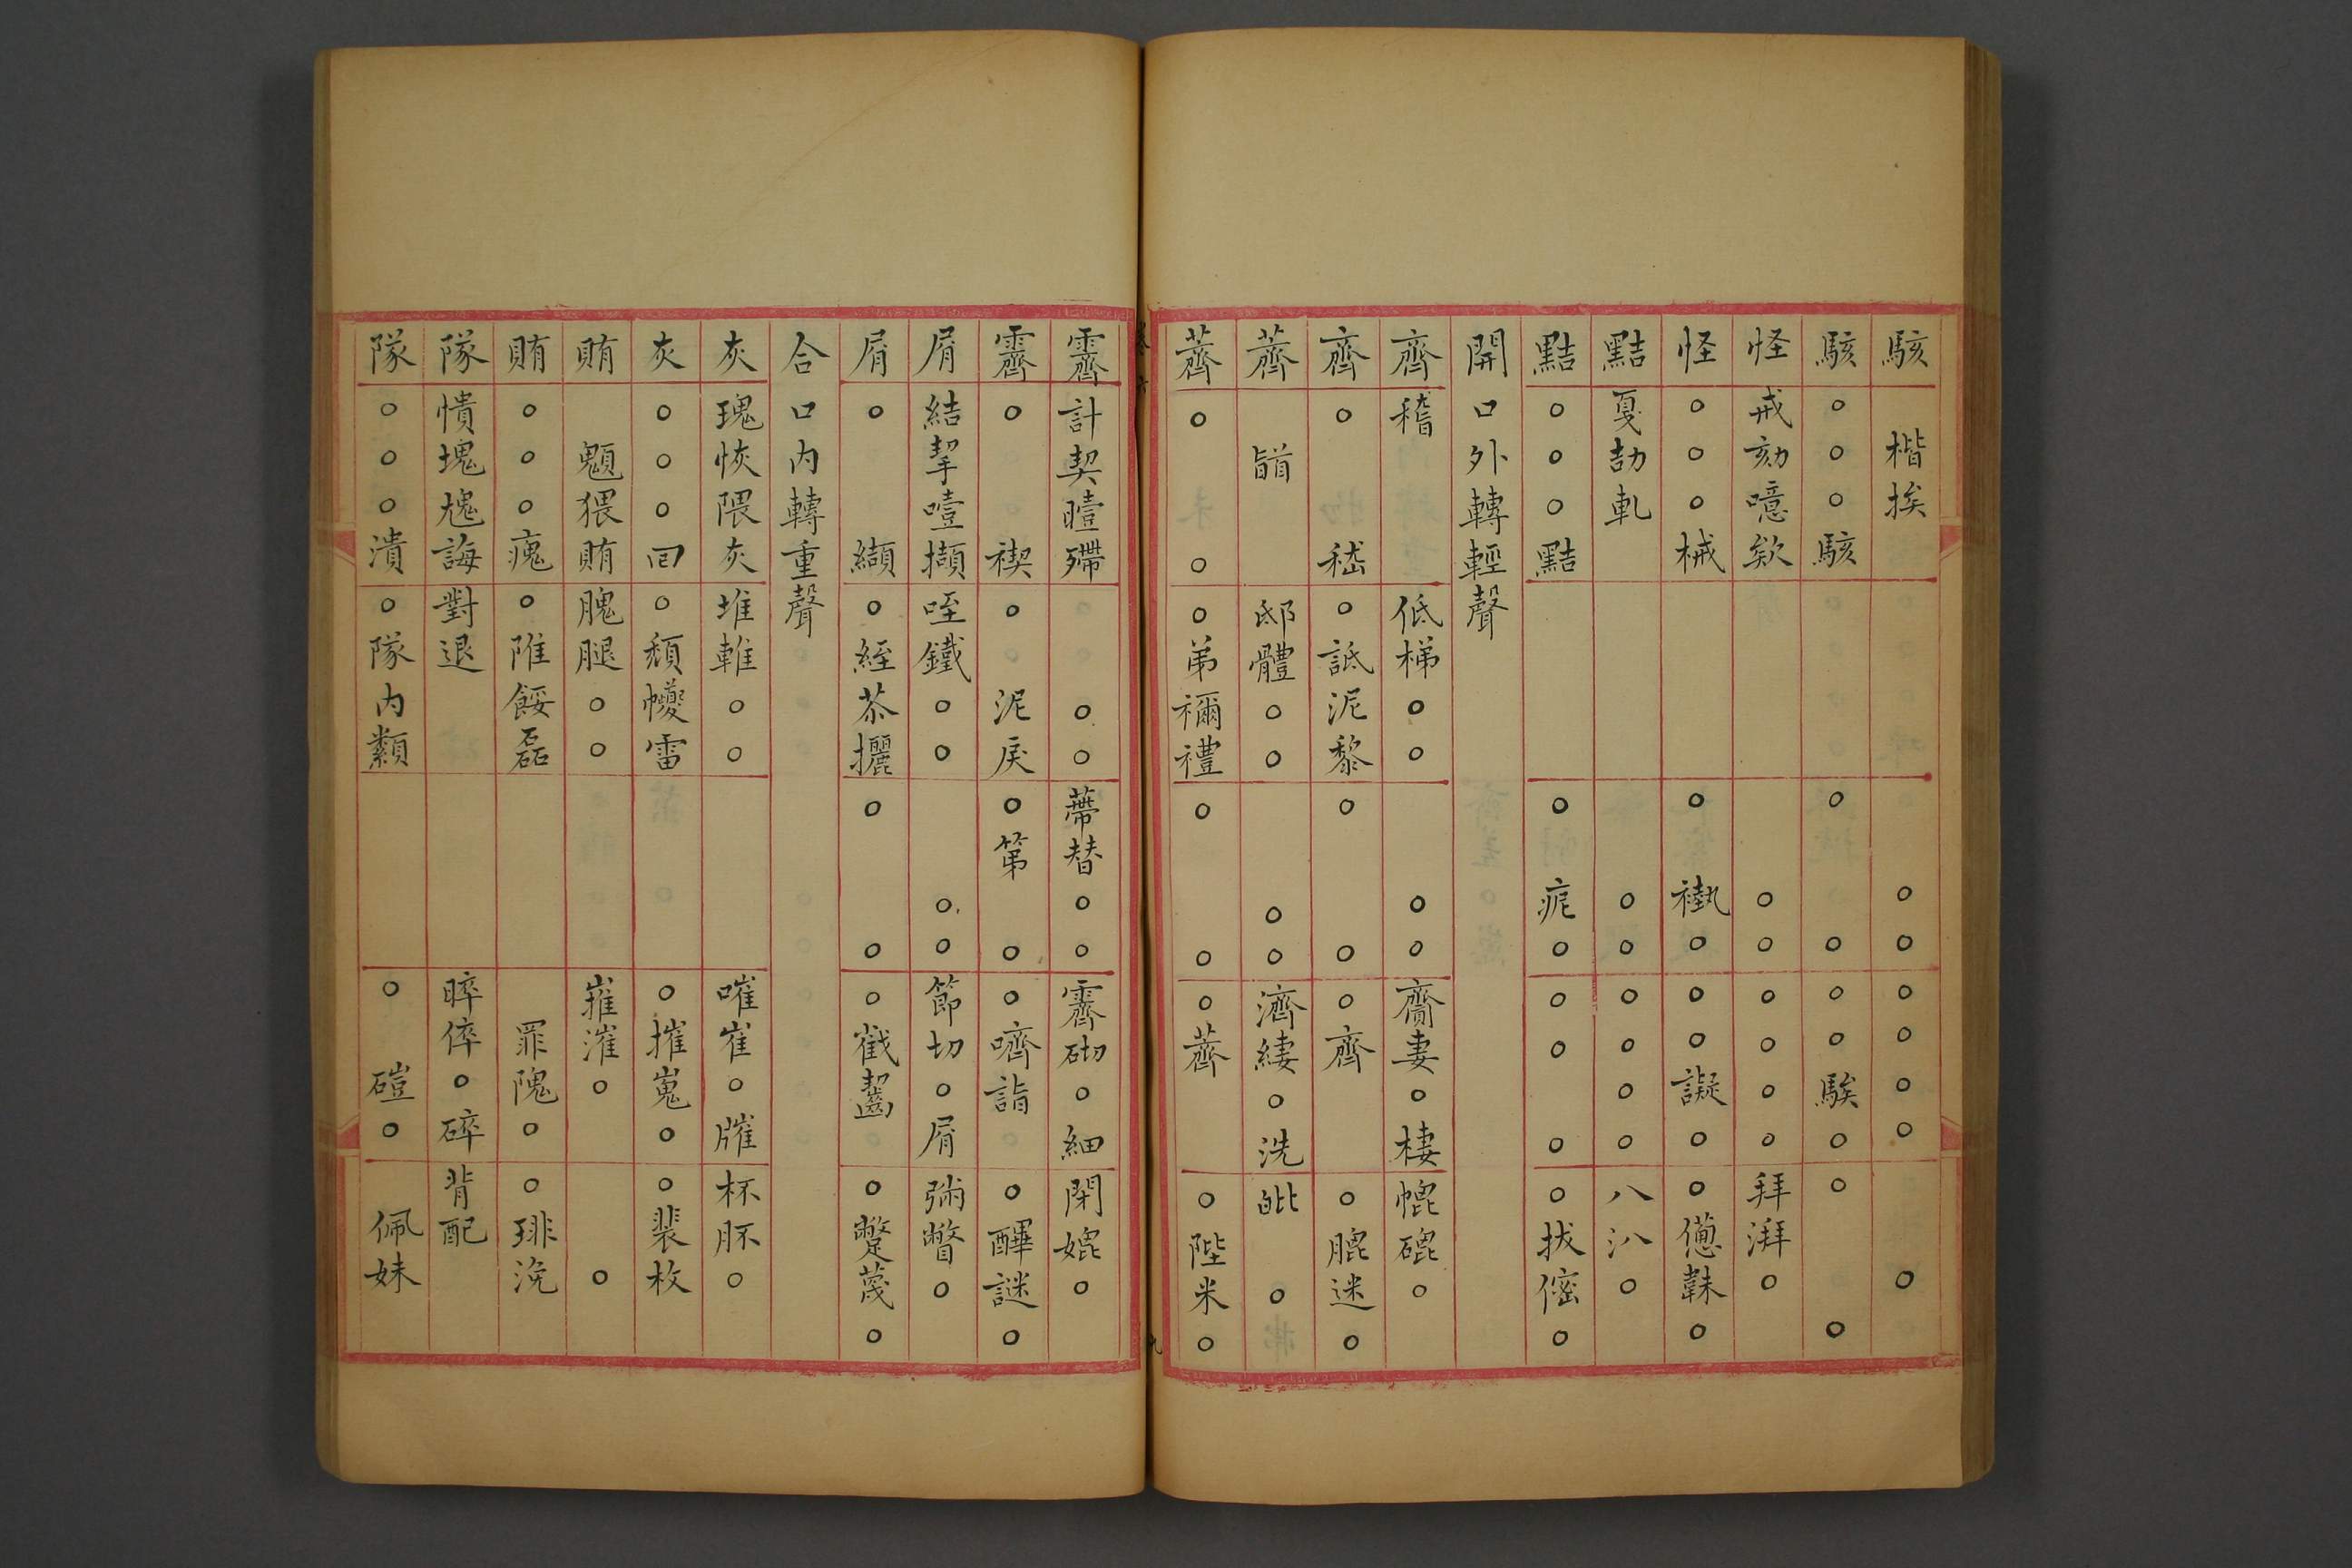 駭楷挨○○○○○○○
駭○○○駭○○○○駭○○○
怪戒劾噫欸○○○○○○拜湃○
怪○○○械○褹○○○譺○○憊韎○
黠戛劼軋○○○○○○八汃○
黠○○○黠○疪○○○○○拔傛○
開口外轉輕聲
齊稽低梯○○○○齎妻○棲㡙磇○
齊○嵇○詆泥黎○○○齊○膍迷○
薺䭬邸體○○○○濟緀○洗㿫○
薺○○○弟禰禮○○○薺○陛米○
霽計契曀㱲○○蔕替○○霽砌○細閉媲○
霽○禊○泥戾○第○○嚌詣○○謎○
屑結挈噎擷咥鐵○○○○節切○屑彆瞥○
屑○纈○絰苶攦○○○截齧○蹩蔑○
合口內轉重聲
灰瑰恢隈灰堆㩾○○嗺崔○膗杯肧○
灰○○○回○頹巙雷○摧嵬○○裴枚
賄䫥猥賄腲腿○○嶊漼○○
賄○○○瘣○陮餒磊罪隗○○琲浼
隊憒塊㙺誨對退晬倅○碎背配
隊○○○潰○隊內纇○磑○佩妹